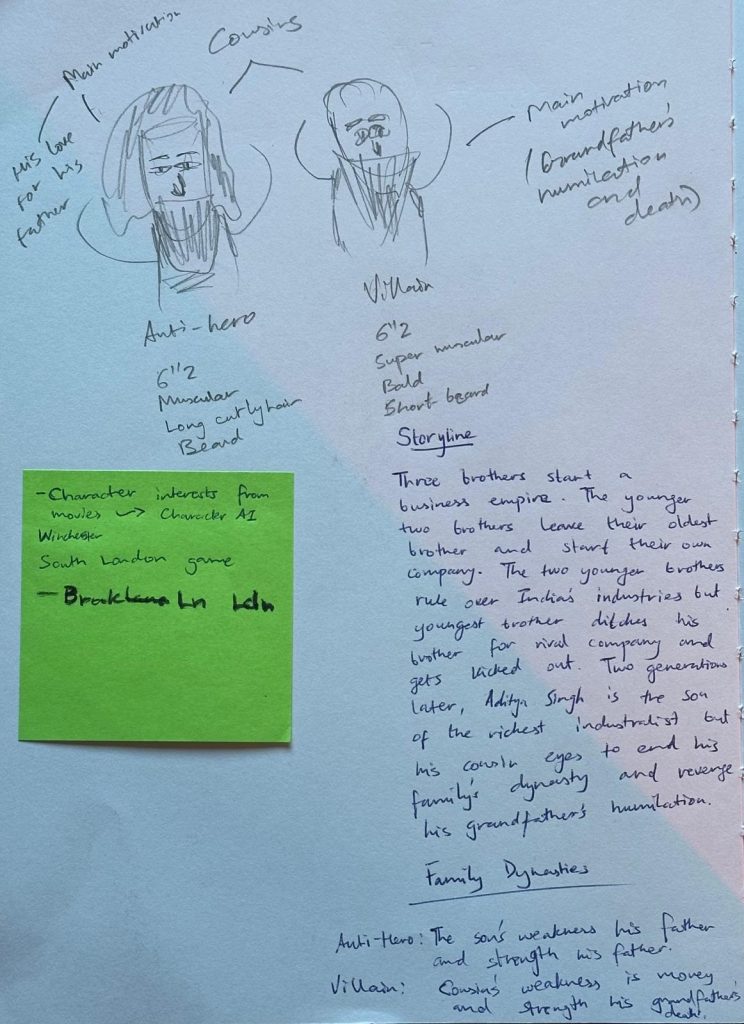 Cousins
Main motivation
His love
for his
father
Main
motivation
(Grandfather's
humilation
and
death)
Anti-hero
6"2
Muscular
Long curlyhair
Beard
Villain
6"2
Super muscular
Bald
Short beard
- Character interests from
movies → Character AI
Winchester
South London game
- Ln Ldn
Storyline
Three brothers start a
business empire. The younger
two brothers leave their oldest
brother and start their own
company. The two younger brothers
rule over India's industries but
youngest brother ditches his
brother for rival company and
gets kicked out. Two generations
later, Aditya Singh is the son
of the richest industralist but
his cousin eyes to end his
family's dynasty and revenge
his grandfather's humilation.
Family Dynasties
Anti-Hero: The son's weakness his father
and strength his father.
Villain: Cousin's weakness is money
and strength his grandfather's
death.